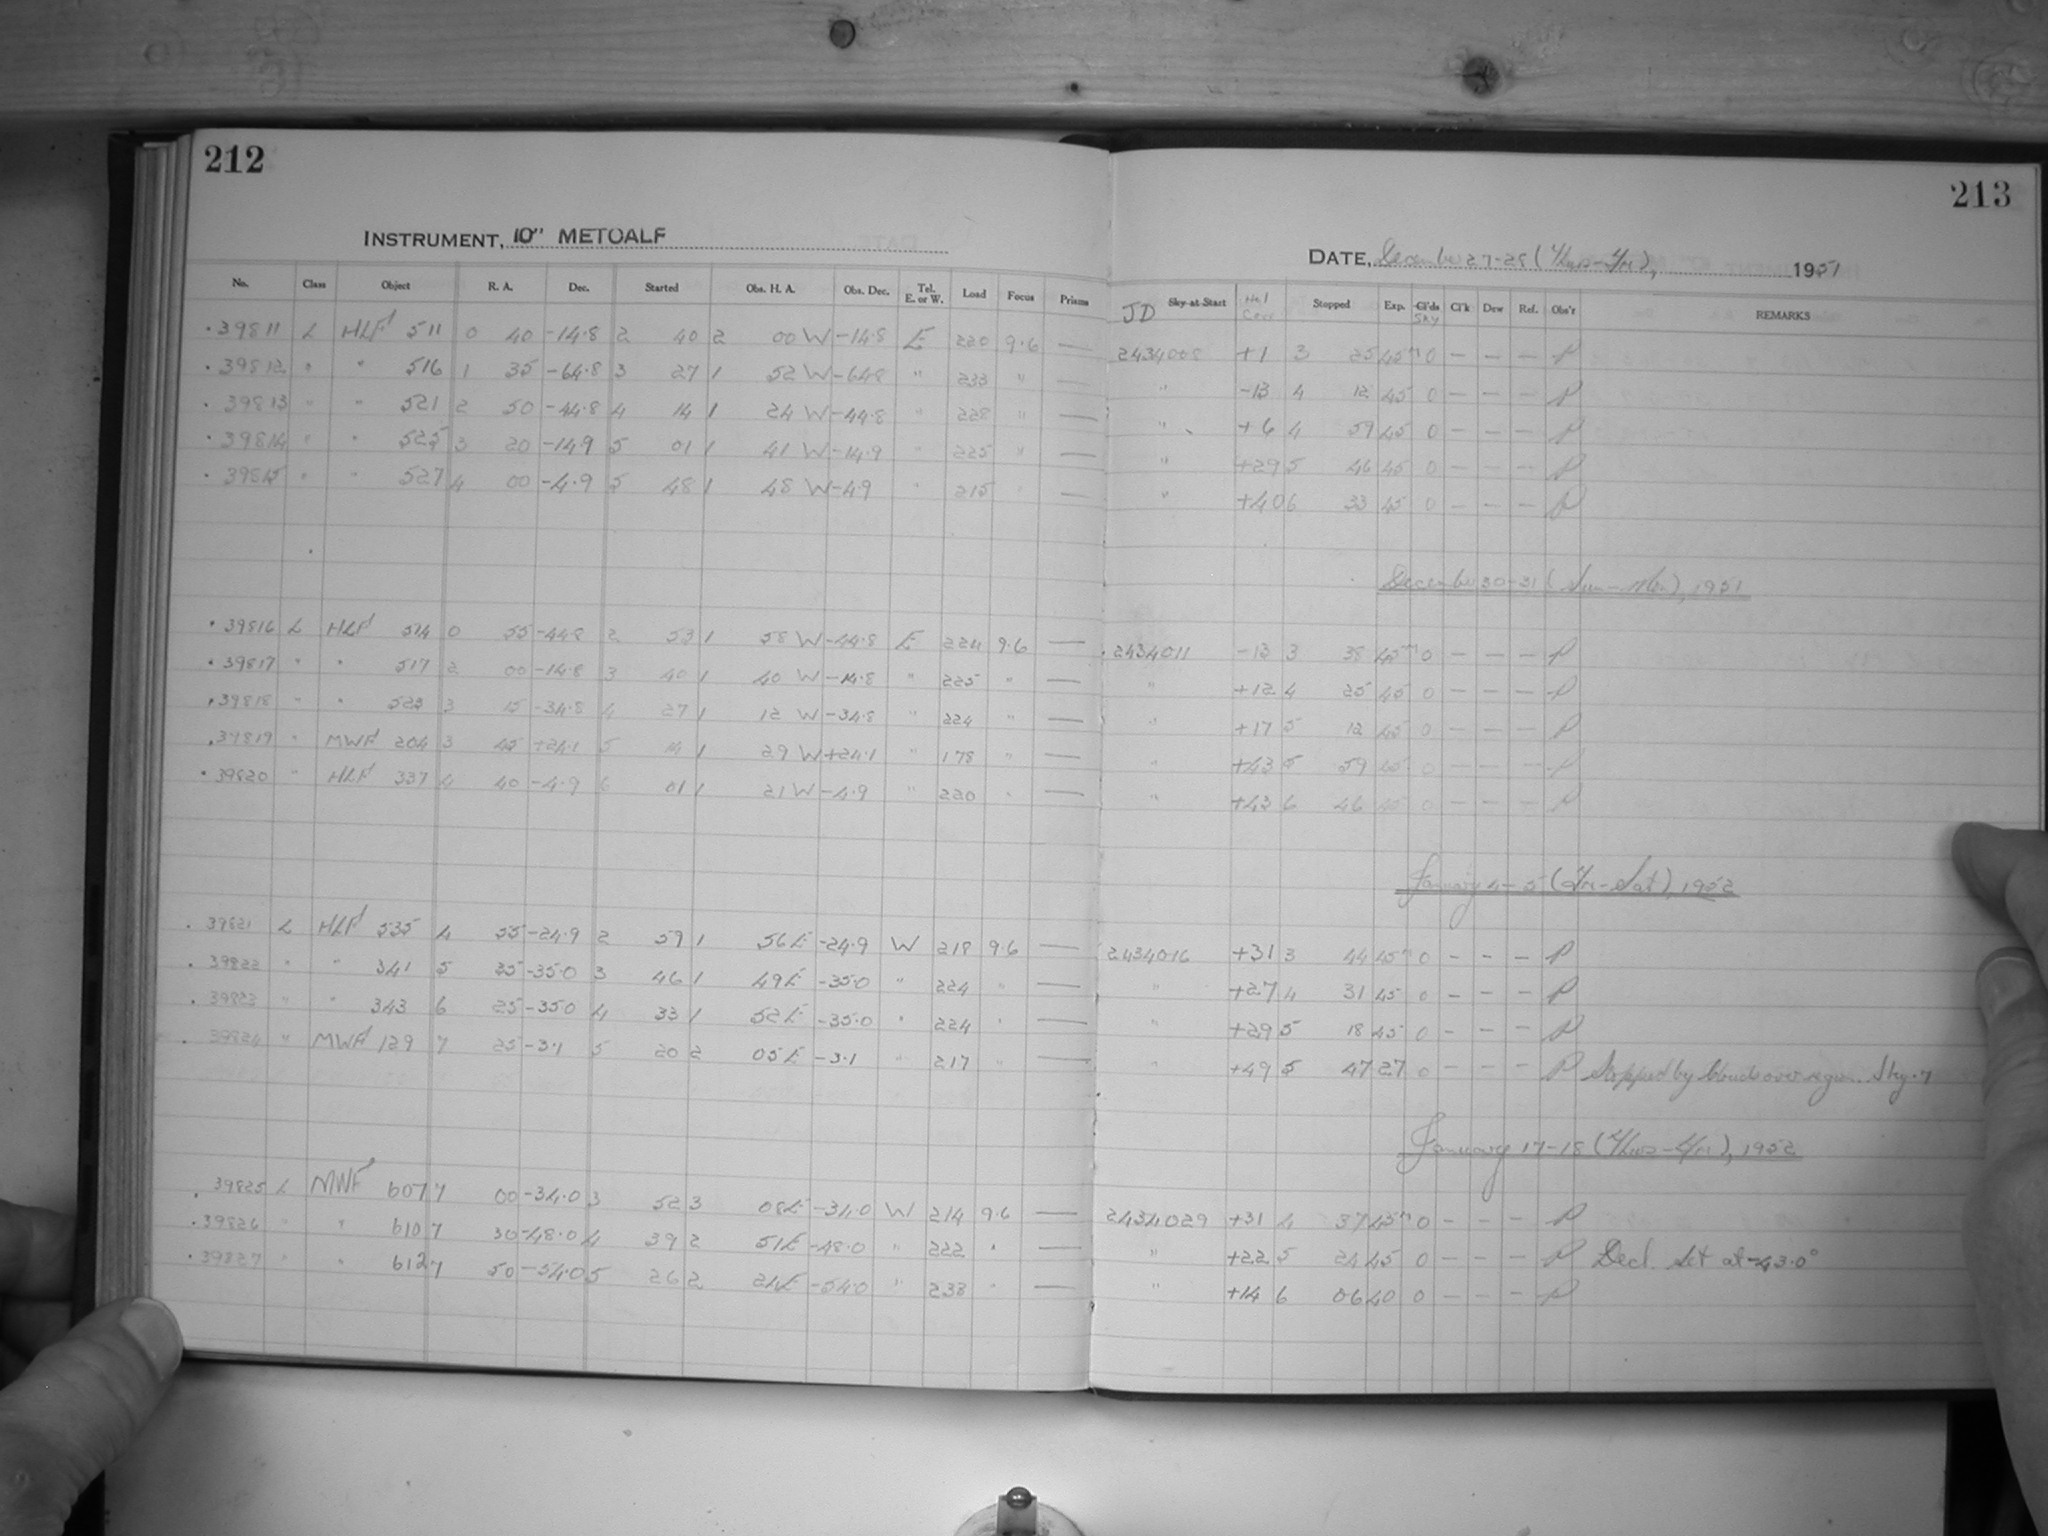 212
INSTRUMENT, 10" METCALF
No. Class Object R. A. Dec. Started Obs. H. A. Obs. Dec. Tel. E. or W. Load Focus Prisms
39811 L HLF 511 0 40 -14.8 2 40 2 00 W -14.8 E 220 9.6 —
39812 " " 516 1 35 -64.8 3 27 1 52 W -64.8 " 233 " —
39813 " " 521 2 50 -44.8 4 14 1 24 W -44.8 " 228 " —
39814 " " 525 3 20 -14.9 5 01 1 41 W -14.9 " 225 " —
39815 " " 527 4 00 -4.9 5 48 1 48 W -4.9 " 215 " —
39816 L HLF 514 0 55 -44.8 2 53 1 58 W -44.8 E 224 9.6 —
39817 " " 517 2 00 -14.8 3 40 1 40 W -14.8 " 225 " —
39818 " " 523 3 15 -34.8 4 27 1 12 W -34.8 " 224 " —
39819 " MWF 204 3 45 +24.1 5 14 1 29 W +24.1 " 178 " —
39820 " HLF 337 4 40 -4.9 6 01 1 21 W -4.9 " 220 " —
39821 L HLF 535 4 55 -24.9 2 59 1 56 E -24.9 W 218 9.6 —
39822 " " 341 5 35 -35.0 3 46 1 49 E -35.0 " 224 " —
39823 " " 343 6 25 -35.0 4 33 1 52 E -35.0 " 224 " —
39824 " MWF 129 7 25 -3.1 5 20 2 05 E -3.1 " 217 " —
39825 L MWF 607 7 00 -34.0 3 52 3 08 E -34.0 W 214 9.6 —
39826 " " 610 7 30 -48.0 4 39 2 51 E -48.0 " 222 " —
39827 " " 612 7 50 -54.0 5 26 2 24 E -54.0 " 238 " —
213
DATE, December 27-28 (Thurs-Fri), 1951
JD Sky-at-Start Hel Corr Stopped Exp. Cl'ds Sky Cl'k Dew Ref. Obs'r REMARKS
2434008 +1 3 25 45m 0 — — — P
" -13 4 12 45 0 — — — P
" +6 4 59 45 0 — — — P
" +29 5 46 45 0 — — — P
" +40 6 33 45 0 — — — P
December 30-31 (Sun-Mon), 1951
2434011 -13 3 38 45m 0 — — — P
" +12 4 25 45 0 — — — P
" +17 5 12 45 0 — — — P
" +43 5 59 45 0 — — — P
" +43 6 46 45 0 — — — P
January 4-5 (Fri-Sat), 1952
2434016 +31 3 44 45m 0 — — — P
" +27 4 31 45 0 — — — P
" +29 5 18 45 0 — — — P
" +49 5 47 27 0 — — — P Stopped by clouds over region. Sky.7
January 17-18 (Thurs-Fri), 1952
2434029 +31 4 37 45m 0 — — — P
" +22 5 24 45 0 — — — P Decl. set at -43.0°
" +14 6 06 40 0 — — — P